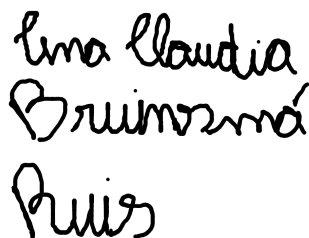 Ema Claudia
Bruinsmá
Ruis